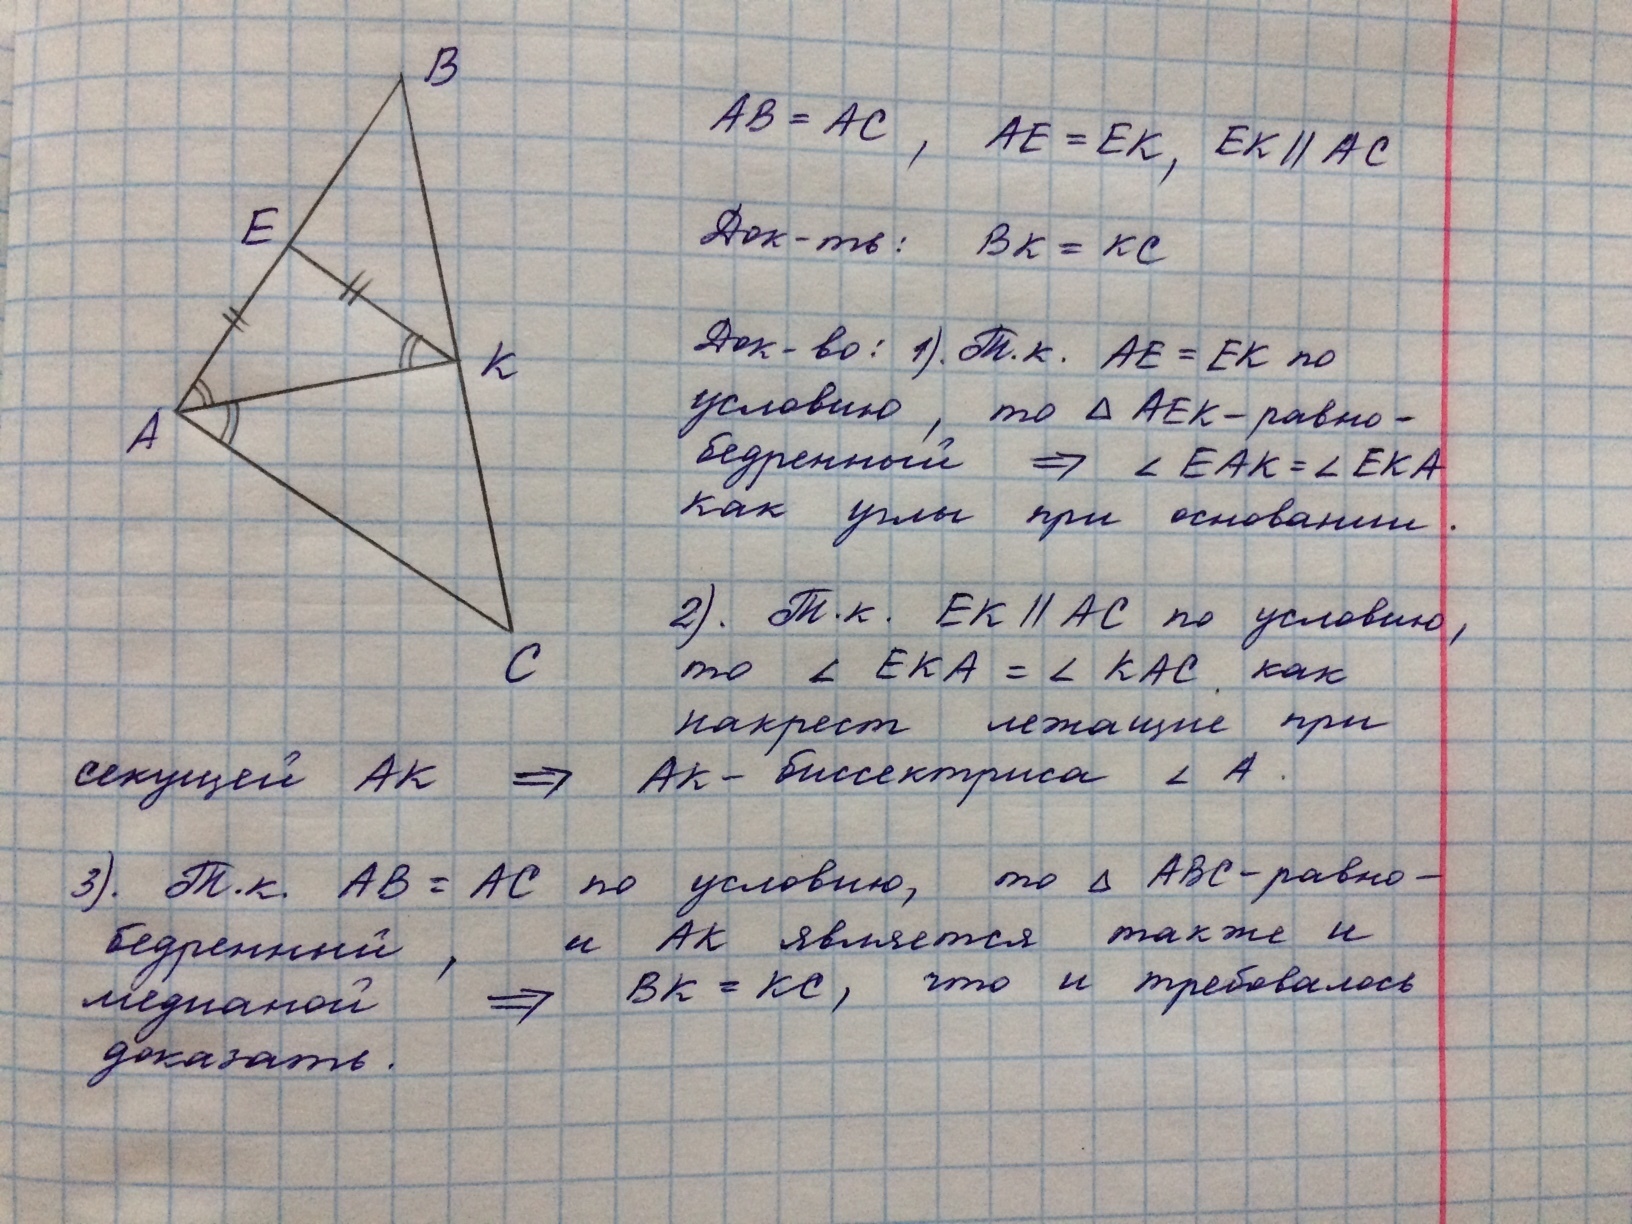 B
E
K
A
C
AB = AC, AE = EK, EK || AC
Док-ть: BK = KC
Док-во: 1). Т.к. AE = EK по
условию, то △ AEK - равно-
бедренный ⇒ ∠ EAK = ∠ EKA
как углы при основании.
2). Т.к. EK || AC по условию,
то ∠ EKA = ∠ KAC как
накрест лежащие при
секущей AK ⇒ AK - биссектриса ∠ A.
3). Т.к. AB = AC по условию, то △ ABC - равно-
бедренный, и AK является также и
медианой ⇒ BK = KC, что и требовалось
доказать.